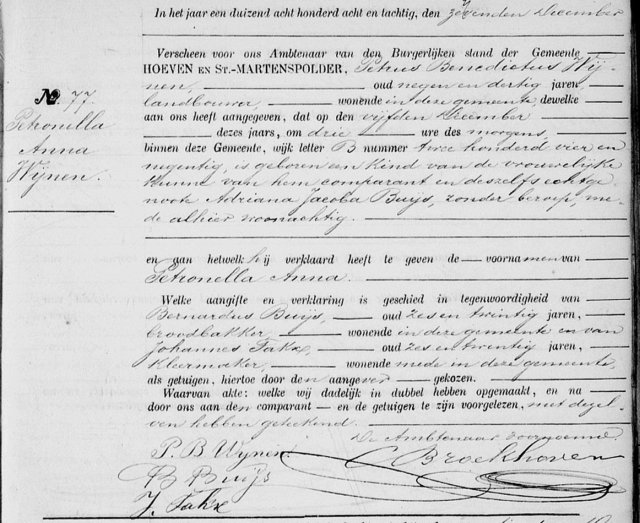 In het jaar een duizend acht honderd acht en tachtig, den zevenden December
Verscheen voor ons Ambtenaar van den Burgerlijken stand der Gemeente
HOEVEN EN ST.-MARTENSPOLDER, Petrus Benedictus Wij-
nen, oud negen en dertig jaren,
landbouwer, wonende in deze gemeente dewelke
aan ons heeft aangegeven, dat op den vijfden december
dezes jaars, om drie ure des morgens,
binnen deze Gemeente, wijk letter B nummer twee honderd vier en
negentig, is geboren een kind van de vrouwelijke
kunne van hem comparant en deszelfs echtge-
noot Adriana Jacoba Buijs, zonder beroep, me-
de alhier woonachtig.
No. 77.
Petronella
Anna
Wijnen.
en aan hetwelk hij verklaard heeft te geven de voornamen van
Petronella Anna.
Welke aangifte en verklaring is geschied in tegenwoordigheid van
Bernardus Buijs, oud zes en twintig jaren,
broodbakker, wonende in deze gemeente en van
Johannes Takx, oud zes en twintig jaren,
kleermaker, wonende mede in deze gemeente,
als getuigen, hiertoe door den aangever gekozen.
Waarvan akte: welke wij dadelijk in dubbel hebben opgemaakt, en na
door ons aan den comparant en de getuigen te zijn voorgelezen, met dezel-
ven hebben geteekend.
De Ambtenaar voornoemd
P. B Wijnen
C Broekhoven
B Buijs
J. Takx